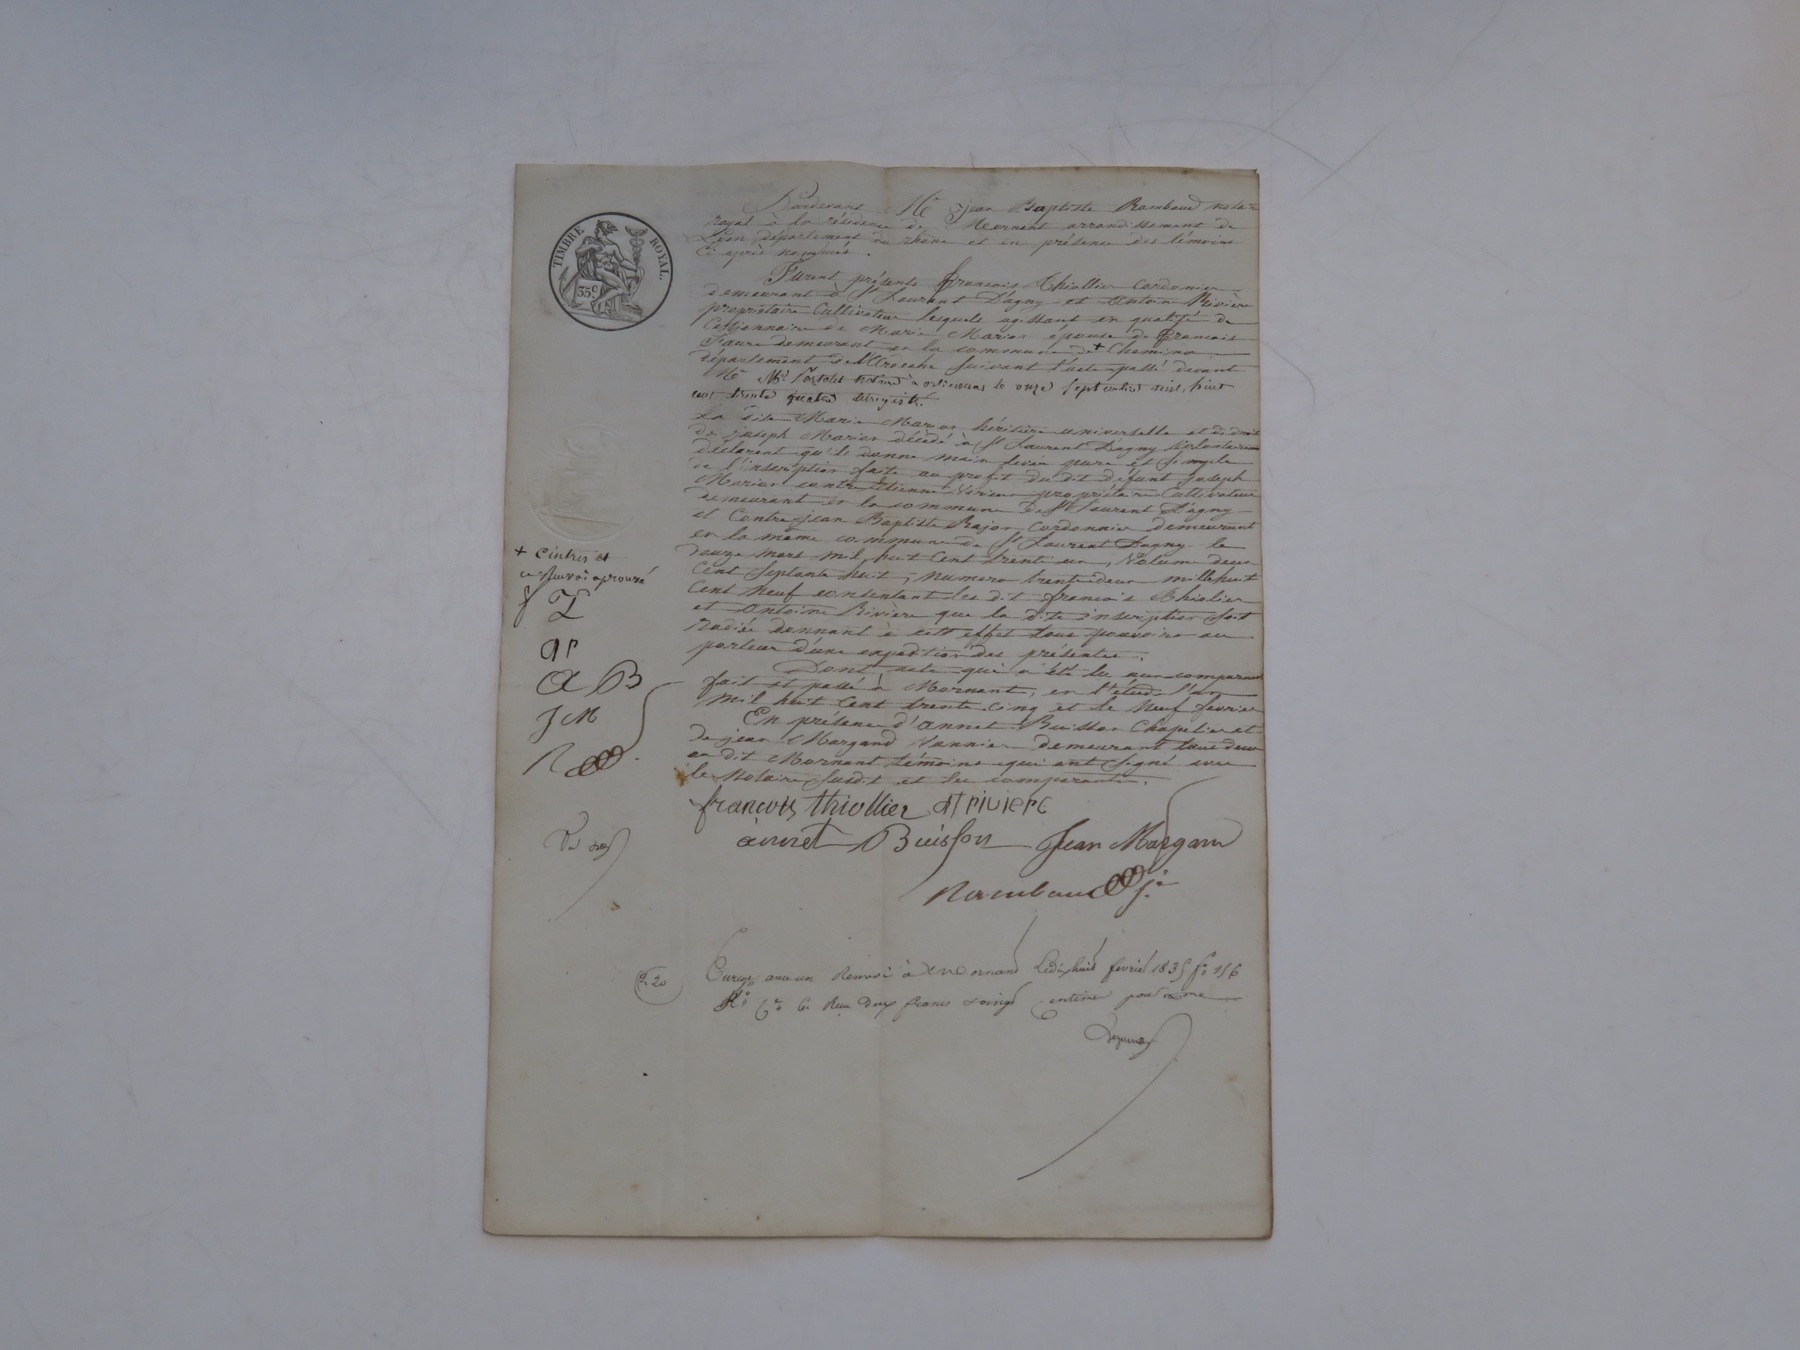 TIMBRE ROYAL.
35 c.
Pardevant Me Jean Baptiste Rambaud notaire
royal à la résidence de Mornant arrondissement de
Lion département du rhône et en présence des témoins
ci après nommés.
Furent présents francois Thiollier Cordonnier
demeurant à St Laurent D'agny et Antoine Rivière
propriétaire Cultivateur lesquels agissant en qualité de
Cessionnaire de Marie Marion épouse de francois
Faure demeurant en la commune de + Chemina
département de l'Ardeche suivant l'acte passé devant
Me notaire à le onze septembre mil huit
cent trente quatre
La dite Marie Marion héritière universelle et de droit
de joseph Marion décédé à St Laurent D'agny volontairement
déclarent qu'ils donne main levée pure et simple
de l'inscription faite au profit du dit défunt joseph
Marion contre Etienne propriétaire Cultivateur
demeurant en la commune de St Laurent D'agny
et Contre jean Baptiste Rajon Cordonnier demeurant
en la même commune de St Laurent Dagny le
douze mars mil huit Cent trente un, Volume deux
Cent Septante huit, numero trente deux mille huit
Cent neuf consentant les dit francois Thiolier
et Antoine Rivière que la dite inscription soit
radiée donnant à cett effet tous pouvoirs au
porteur d'une expedition des présentes.
Dont acte qui a été lu aux comparants
fait et passé à Mornant, en l'étude l'an
mil huit Cent trente cinq et le neuf fevrier
En présence d'annet Buisson Chapelier et
de jean Margand Vannier demeurant tous deux
au dit Mornant témoins qui ont signé avec
le Notaire susdit et les comparants.
+ et
ce renvoi aprouvé
f T
AR
A B
J M
R
françois thiollier At riviere
annet Buisson Jean Margan
Rambaud
2 20
un Renvoi à Mornant Ledixhuit fevrier 1835 fo 156
Ro Co 6. Recu deux francs vingt centimes pour